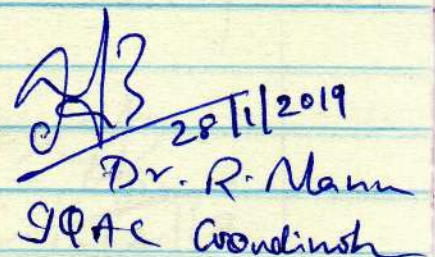 28/1/2019
Dr. R. Mann
IQAC Coordinator